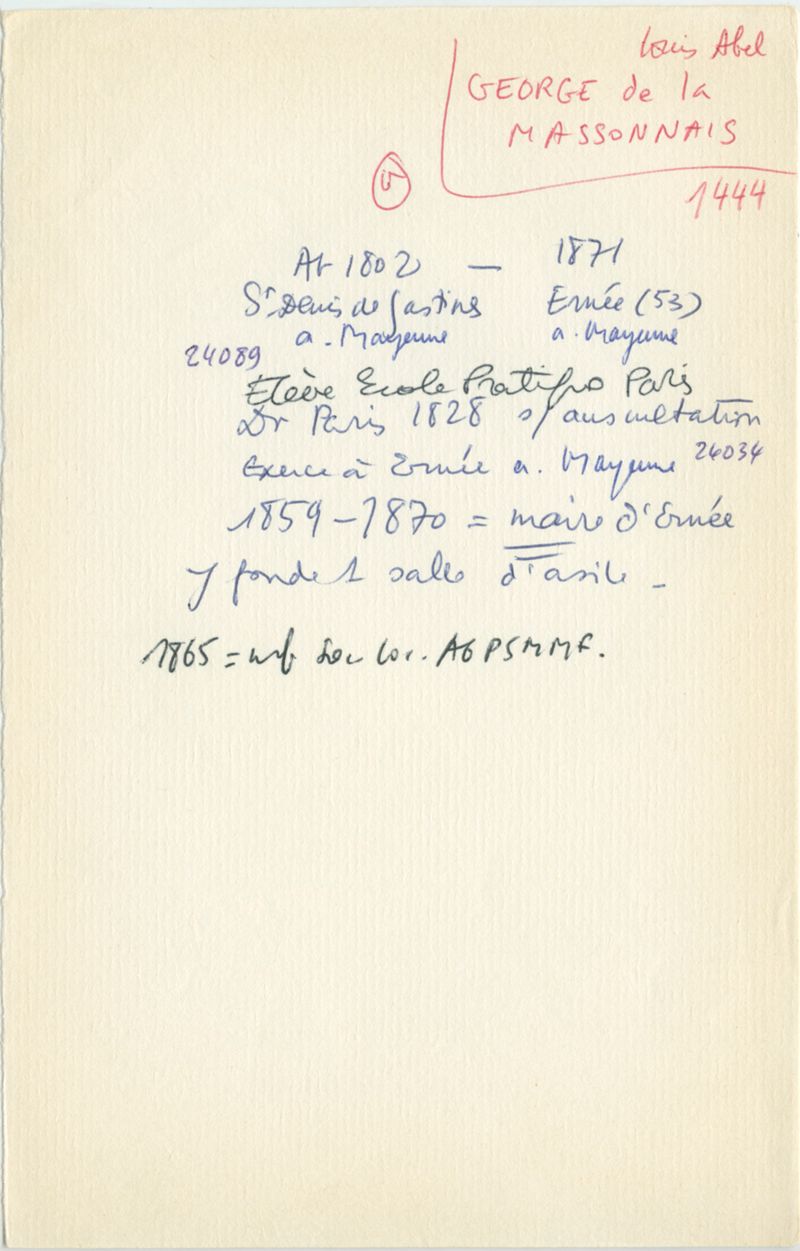 Louis Abel
GEORGE de la
MASSONNAIS
1444
1802 — 1871
St Denis de Gastines Ernée (53)
a. Mayenne a. Mayenne
24089
Elève Ecole Pratique Paris
Dr Paris 1828 s/ auscultation
Exerce à Ernée a. Mayenne 24034
1859-1870 = maire d'Ernée
y fonde 1 salle d'asile -
1865 = mb Soc loc. AGPSMMF.